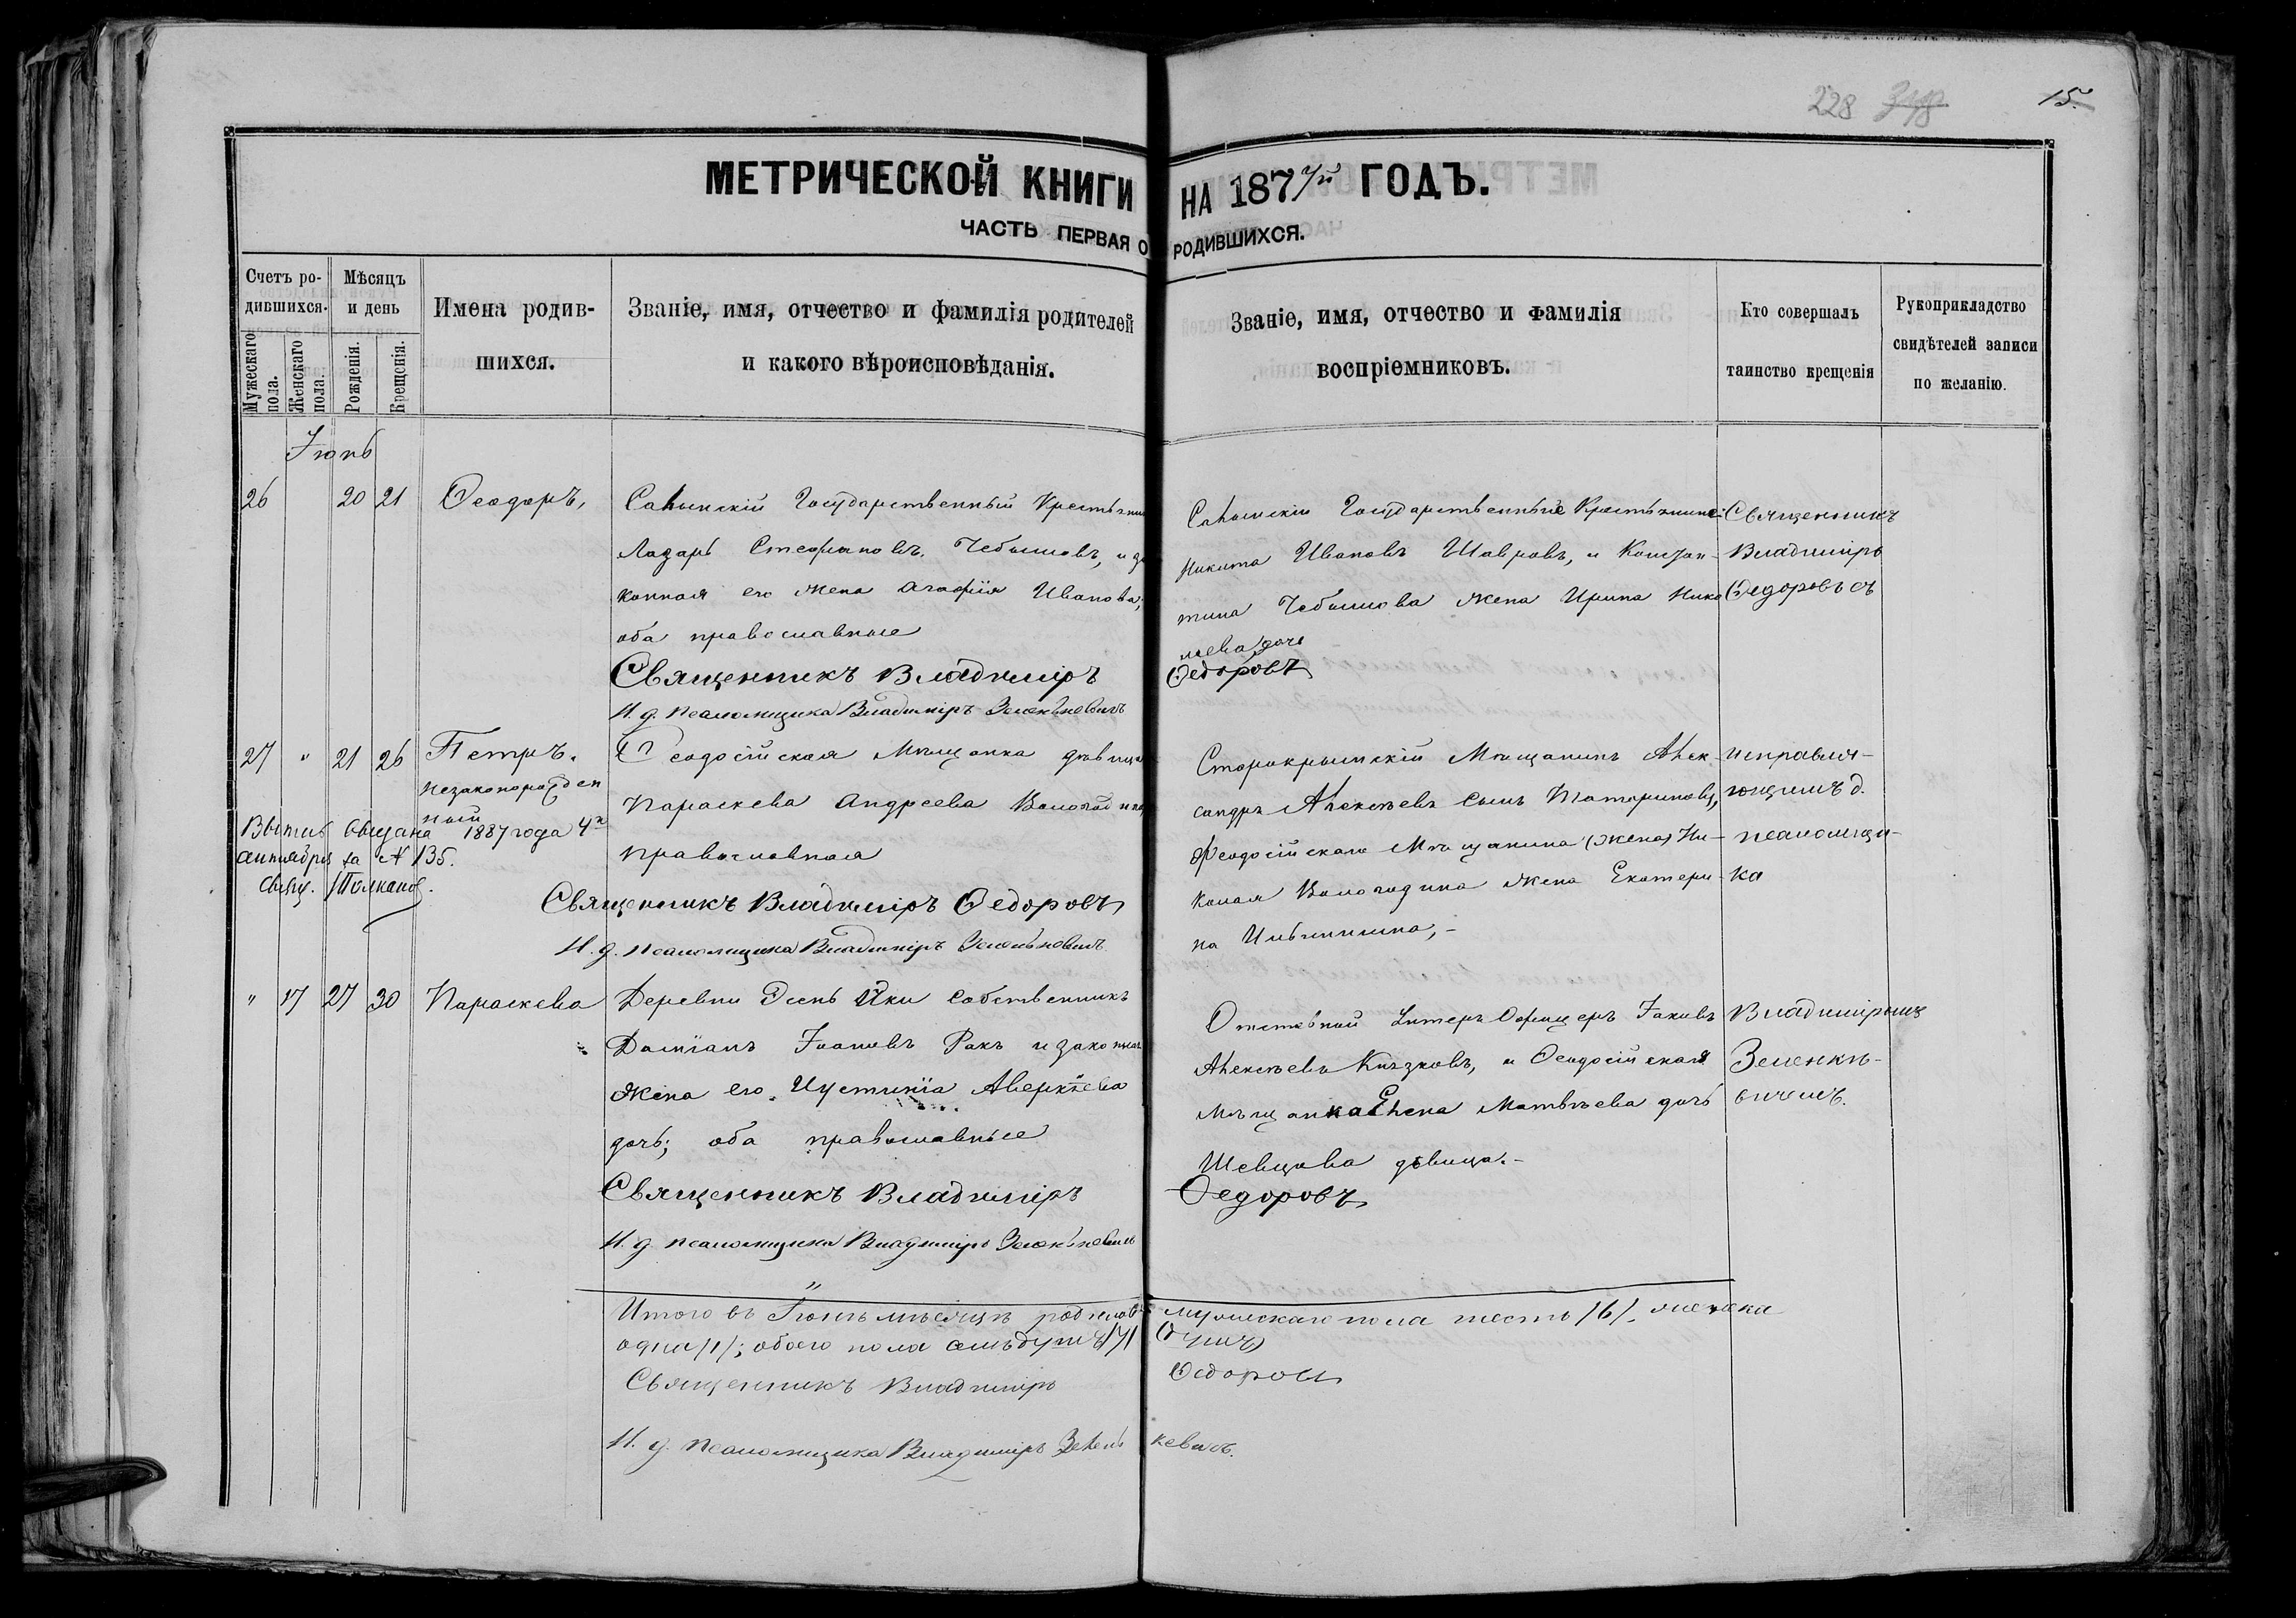 228 15.
МЕТРИЧЕСКОЙ КНИГИ НА 1877й ГОДЪ.
ЧАСТЬ ПЕРВАЯ О РОДИВШИХСЯ.
Счетъ ро-
дившихся.
Мужескаго пола.
Женскаго пола.
Мѣсяцъ
и день
Рожденія.
Крещенія.
Имена родив-
шихся.
Званіе, имя, отчество и фамилія родителей
и какого вѣроисповѣданія.
Званіе, имя, отчество и фамилія
воспріемниковъ.
Кто совершалъ
таинство крещенія
Рукоприкладство
свидѣтелей записи
по желанію.
Іюнь
26 20 21 Ѳеодоръ,
Государственный Крестьянин
Лазарь Стефановъ Чебышовъ, и за
конная его жена Агафія Иванова,
оба православные
Священникъ Владиміръ
И. д. псаломщика Владиміръ Зеленкевичъ
Государственные Крестьяни
Никита Ивановъ Шавровъ, и Констан-
тина Чебышова жена Ирина Нико
лаева дочь
Ѳедоровъ
Священникъ
Владиміръ
Ѳедоровъ съ
27 " 21 26 Петръ.
незаконорожден
ный
Выпись выдана 1887 года 4го
за № 135.
Свящ.
Ѳеодосійская Мѣщанка дѣвица
Параскева Андреева
православная
Священникъ Владиміръ Ѳедоровъ
И. д. псаломщика Владиміръ Зеленкевичъ
Старокрымскій Мѣщанинъ Алек-
сандръ Алексѣевъ сынъ Татариновъ,
Феодосійскаго Мѣщанина (жена) Ни-
колая Вологодина жена Екатери
на Ильинишна,-
исправля-
ющимъ д.
псаломщи-
ка
" 17 27 30 Параскева
Деревни
Даміанъ Іоановъ Ракъ и законная
жена его Иустинія Аверкіева
дочь; оба православные
Священникъ Владиміръ
И. д. псаломщика Владиміръ Зеленкевичъ
Отставной Унтеръ Офицеръ Іаковъ
Алексѣевъ Князковъ, и Ѳеодосійская
Мѣщанка Елена Матвѣева дочь
Шевцова дѣвица.-
Ѳедоровъ
Владиміромъ
Зеленке-
вичемъ.
Итого въ Іюнѣ мѣсяцѣ родилось мужескаго пола шесть /6/, женска
одна /1/; обоего пола семь душъ /7/ (душъ)
Священникъ Владиміръ Ѳедоровъ
И. д. псаломщика Владиміръ Зеленкевичъ.